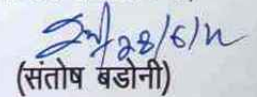 28/6/22
(संतोष बडोनी)